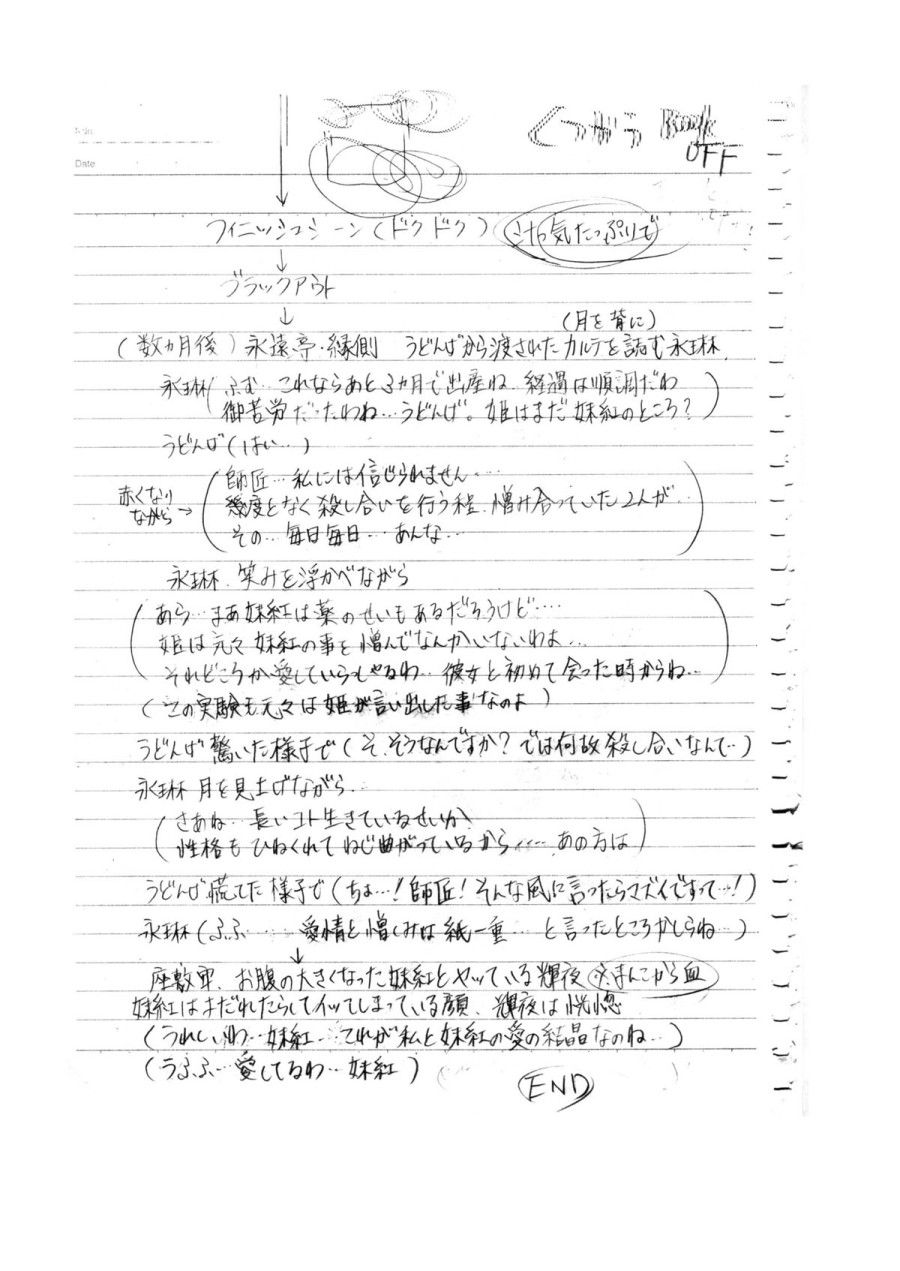 くつがら
OFF
Date
フィニッシュシーン(ドクドク) 気たっぷりで
↓
ブラックアウト
↓
(月を背に)
(数カ月後) 永遠亭・縁側 うどんげから渡されたカルテを読む永琳
永琳(ふむ…これならあと3カ月で出産ね 経過は順調だわ
御苦労だったわね…うどんげ。姫はまだ妹紅のところ?)
うどんげ(はい…)
赤くなりながら→
(師匠…私には信じられません…
幾度となく殺し合いを行う程、憎み合っていた2人が
その…毎日毎日…あんな…)
永琳、笑みを浮かべながら
(あら…まあ妹紅は薬のせいもあるだろうけど…
姫は元々妹紅の事を憎んでなんかいないわよ…
それどころか愛していらっしゃるわ…彼女と初めて会った時からね…)
(この実験も元々は姫が言い出した事なのよ)
うどんげ驚いた様子で(そ、そうなんですか?では何故殺し合いなんて…)
永琳 月を見上げながら…
(さあね…長いコト生きているせいか、
性格もひねくれてねじ曲がっているから……あの方は)
うどんげ慌てた様子で(ちょ…!師匠!そんな風に言ったらマズイですって…!)
永琳(ふふ……愛情と憎しみは紙一重…と言ったところかしらね…)
↓
座敷牢、お腹の大きくなった妹紅とヤッている輝夜 ※まんこから血
妹紅はまだれたらしてイッてしまっている顔、輝夜は恍惚
(うれしいわ…妹紅…これが私と妹紅の愛の結晶なのね…)
(うふふ…愛してるわ…妹紅)
END